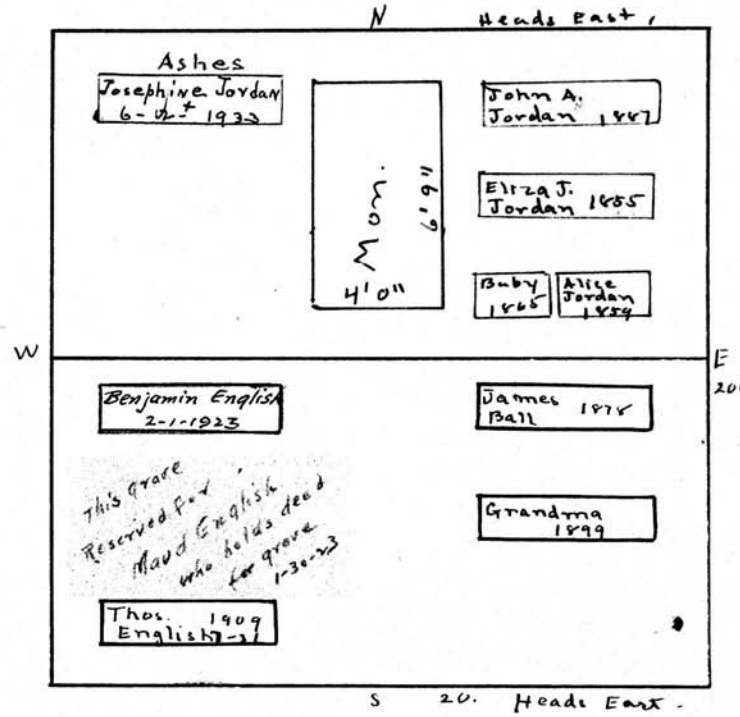 N Heads East,
Ashes
Josephine Jordan
1933
Mon.
4'0"
6'9"
John A.
Jordan 1887
Eliza J.
Jordan 1855
Baby
1865
Alice
Jordan
1859
W
E
20.
Benjamin English
2-1-1923
This grave
Reserved for
Maud English
who holds deed
for grave
1-30-23
James
Ball 1878
Grandma
1899
Thos. 1909
English
S 20. Heads East.